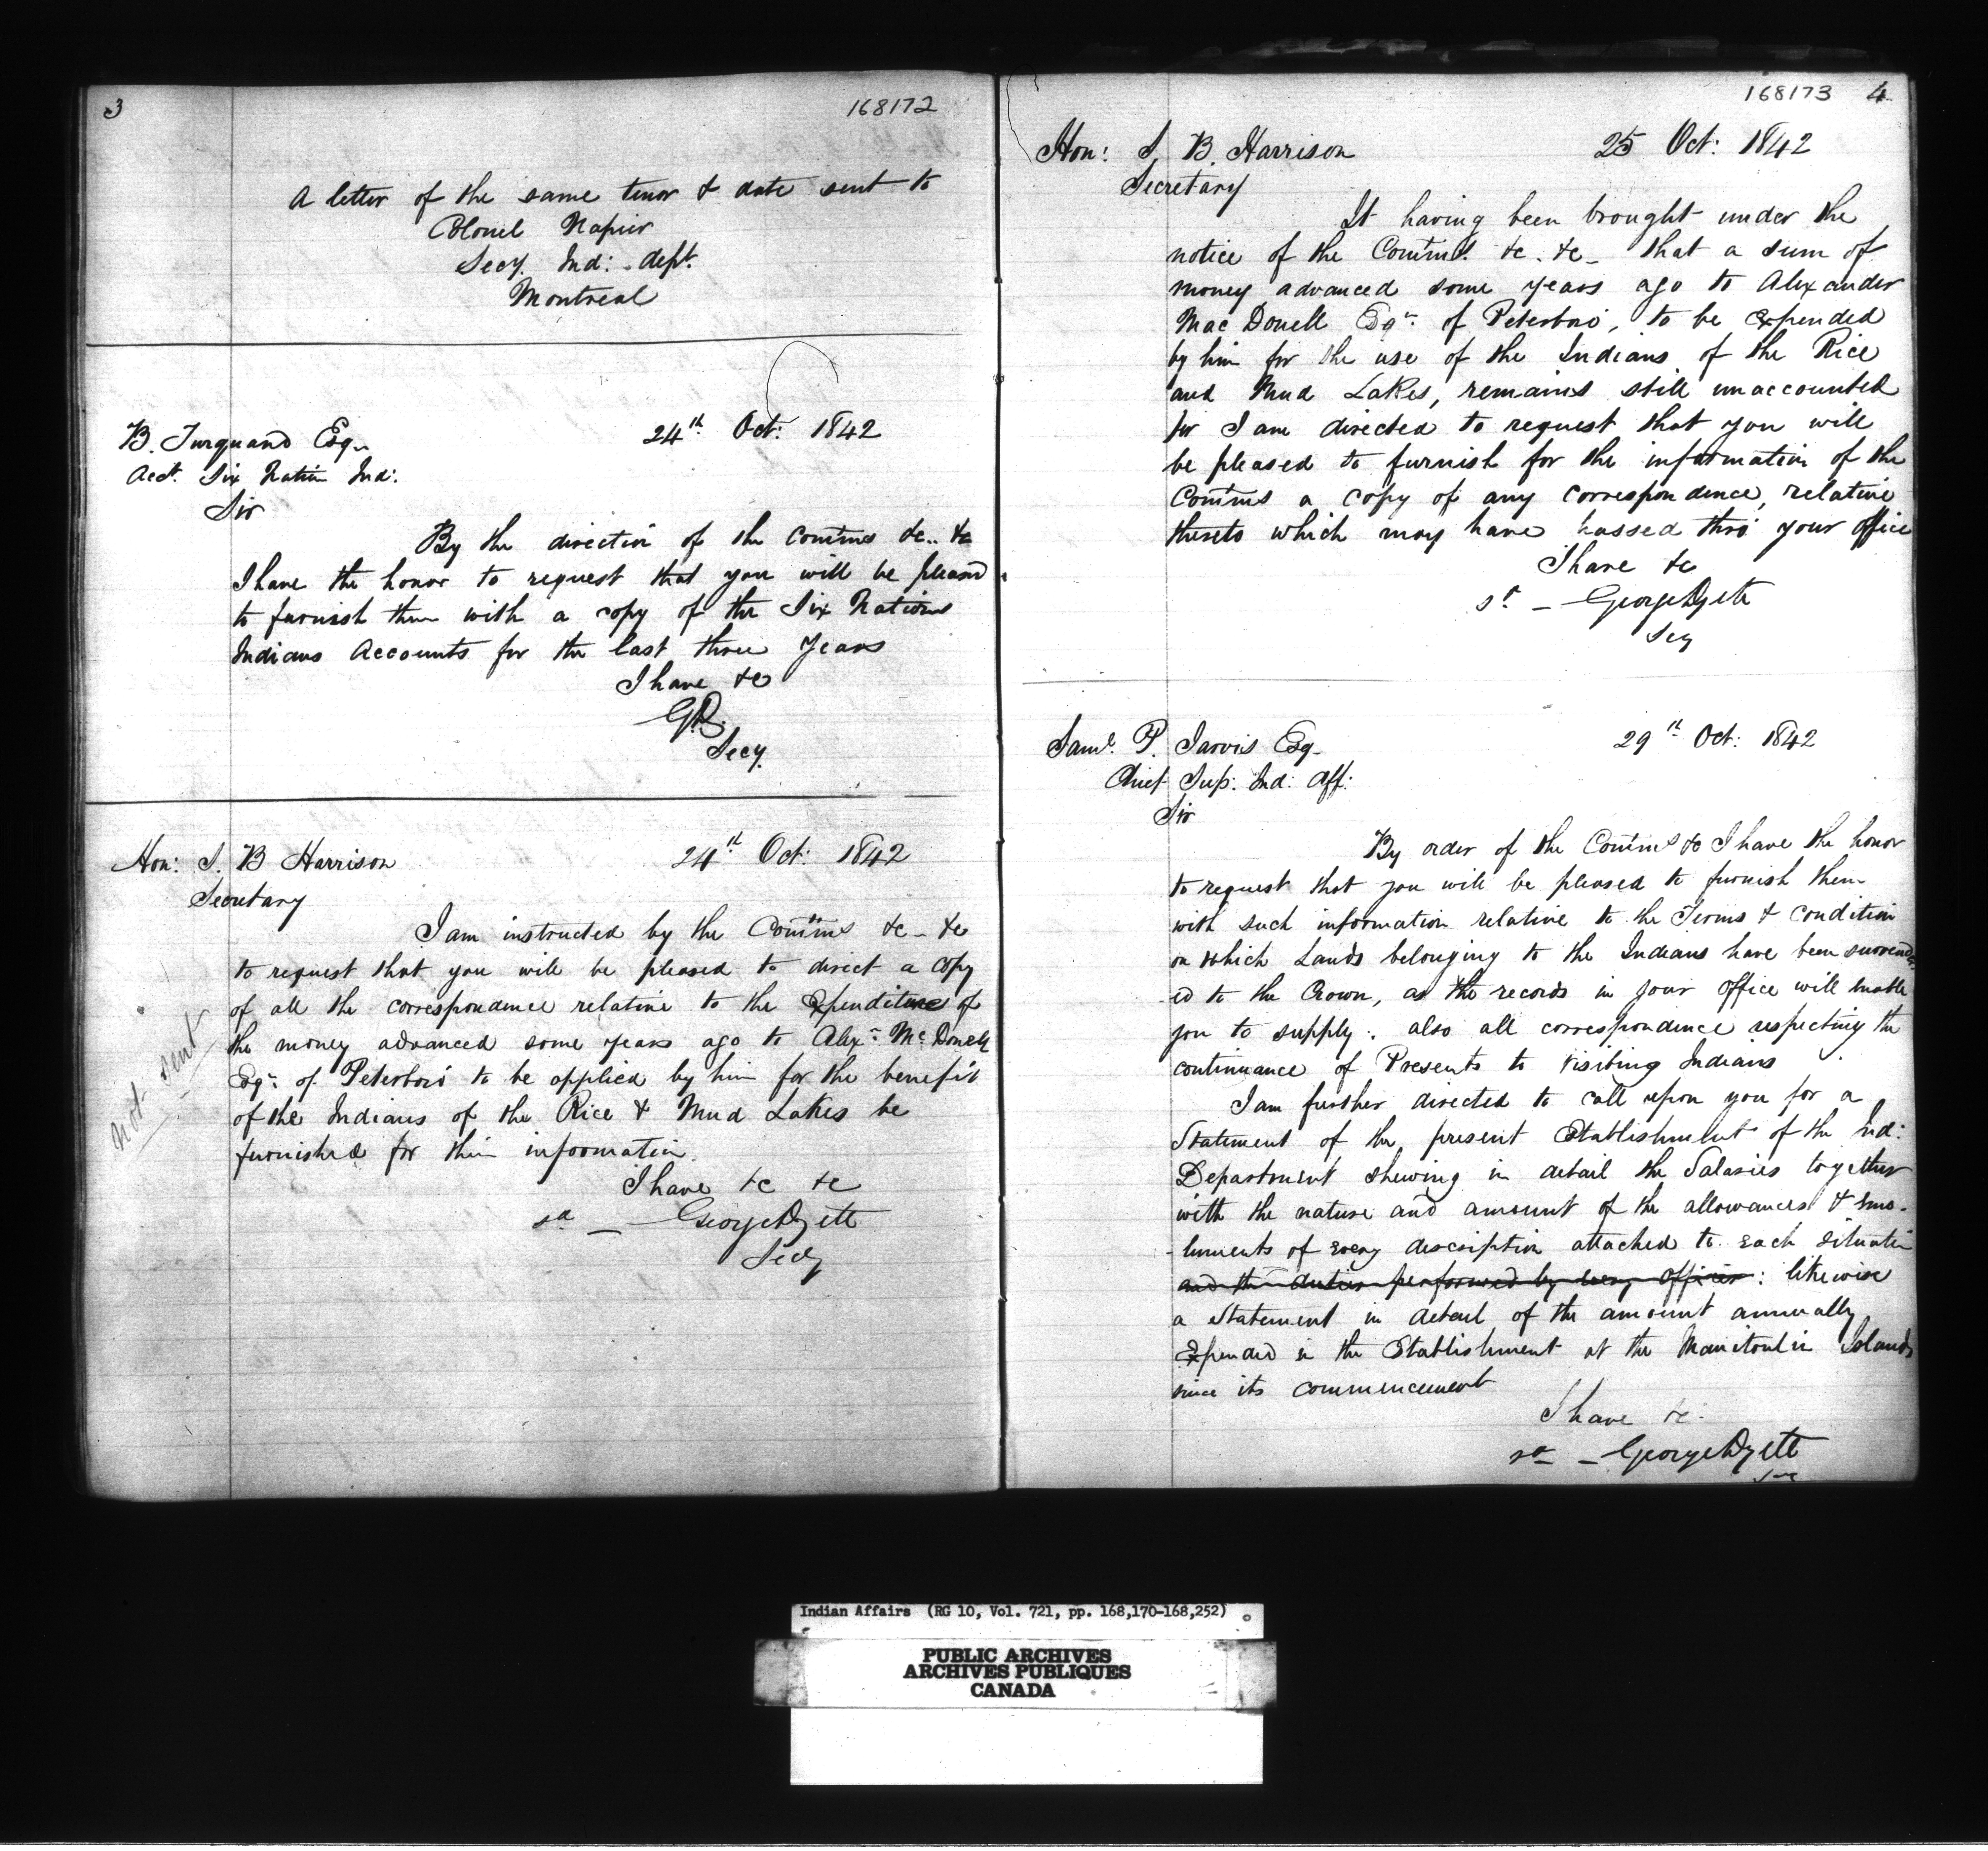 3
168172
A letter of the same tenor & date sent to
Colonel Napier
Secy. Ind: dept.
Montreal
B. Turquand Esq.
24th Oct: 1842
Acct. Six Nation Ind:
Sir
By the direction of the Comms &c.. &c
I have the honor to request that you will be pleased
to furnish them with a copy of the Six Nations
Indians Accounts for the last three Years
I have &c
Secy.
Hon: S. B Harrison
24th Oct: 1842
Secretary
I am instructed by the Comms &c - &c
to request that you will be pleased to direct a copy
of all the correspondence relative to the Expenditure of
the money advanced some years ago to Alexr McDonell
Esqr of Peterboro' to be applied by him for the benefit
of the Indians of the Rice & Mud Lakes be
furnished for their information.
I have &c &c
Secy
not sent
168173 4
Hon: S. B. Harrison
25 Oct: 1842
Secretary
It having been brought under the
notice of the Comms. &c. &c - that a sum of
money advanced some years ago to Alexander
Mac Donell Esqr of Peterboro', to be expended
by him for the use of the Indians of the Rice
and Mud Lakes, remains still unaccounted
for I am directed to request that you will
be pleased to furnish for the information of the
Comms a copy of any correspondence, relative
thereto which may have passed thro' your office
I have &c
Secy
Saml. P. Jarvis Esq.
29th Oct: 1842
Chief Sup: Ind: Aff:
Sir
By order of the Comms &c I have the honor
to request that you will be pleased to furnish them
with such information relative to the Terms & condition
on which Lands belonging to the Indians have been surrender
-ed to the Crown, as the records in your office will enable
you to supply: also all correspondence respecting the
continuance of Presents to visiting Indians
I am further directed to call upon you for a
Statement of the present Establishment of the Ind:
Department shewing in detail the Salaries together
with the nature and amount of the allowances & emo-
-luments of every description attached to each situation
and the duties performed by every officer: likewise
a Statement in detail of the amount annually
Expended in the Establishment at the Manitoulin Islands
since its commencement
I have &c.
Indian Affairs (RG 10, Vol. 721, pp. 168,170-168,252)
PUBLIC ARCHIVES
ARCHIVES PUBLIQUES
CANADA